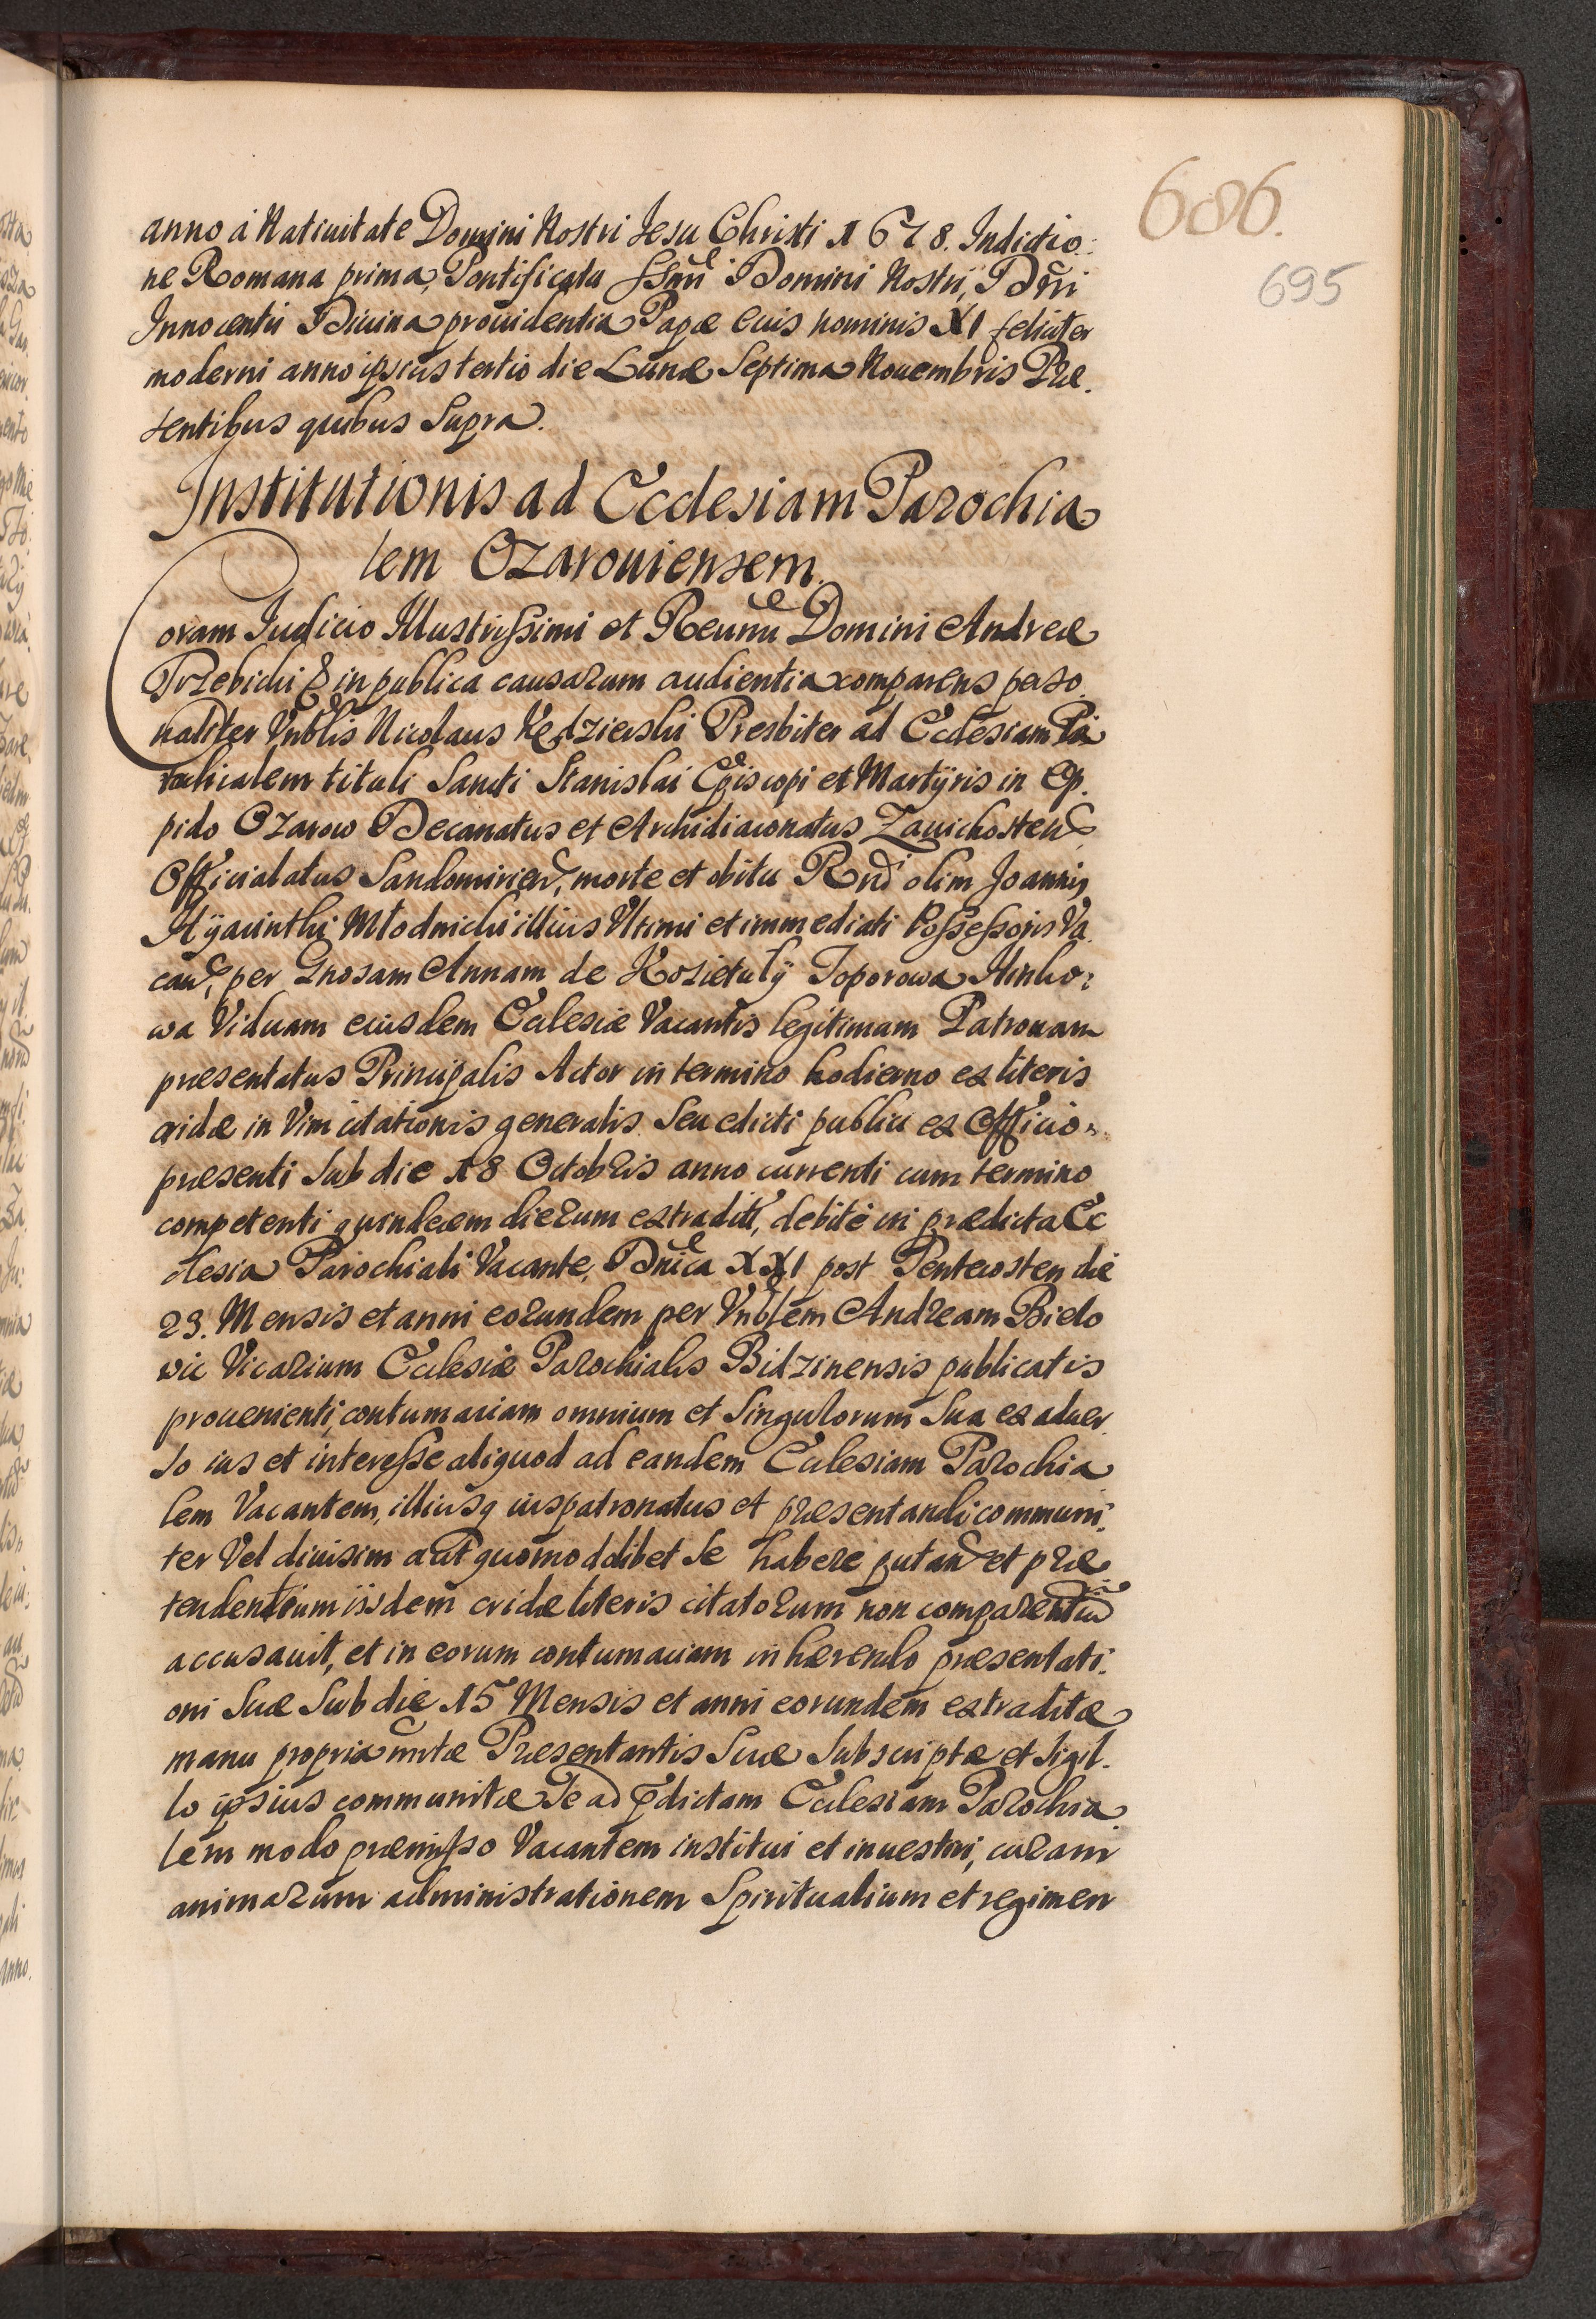 686.
695
anno á Natiuitate Domini Nostri Jesu Christi 1678. Indictio:
ne Romana prima, Pontificatu SSmi Domini Nostri, Dni
Innocentii Diuina prouidentia Papæ euis nominis XI feliciter
moderni anno ipsius tertio die Lunæ Septima Nouembris Præ.
sentibus quibus Supra.
Institutionis ad Ecclesiam Parochia
lem Ozarouiensem.
Coram Judicio Illustrissimi et Reumi Domini Andreæ
Trzebicki & in publica causarum audientia comparens perso.
naliter Vnblis Nicolaus Kędzierski Presbiter ad Ecclesiam Pa
rochialem tituli Sancti Stanislai Episcopi et Martÿris in Op.
pido Ozarow Decanatus et Archidiaconatus Zauichosten
Officialatus Sandomirien, morte et obitu Rndi olim Joannis
Hÿacinthi Młodnicki illius Vltimi et immediati Possessoris Va.
can, per Gnosam Annam de Kosietuły Toporowa Hinko:
wa Viduam eiusdem Ecclesiæ Vacantis legitimam Patronam
præsentatus Principalis Actor in termino hodierno ex literis
cridæ in Vim citationis generalis Seu edicti publici ex Officio
præsenti Sub die 18 Octobris anno currenti cum termino
competenti quindecem dierum extraditt, debité in prædicta Ec
clesia Parochiali Vacante, Dnica XXI post Pentecosten die
23. Mensis et anni eorundem per Vnblem Andream Bielo
wic Vicarium Ecclesiæ Parochialis Bidzinensis publicatis
prouenienti, contumaciam omnium et Singulorum Sua ex aduer.
so ius et interesse aliquod ad eandem Ecclesiam Parochia
lem Vacantem, illiusq iuspatronatus et præsentandi communi.
ter Vel diuisim aut quomoddlibet Se habere putan et præ
tendentium iisdem cridæ literis citatorum non comparentiu
accusauit, et in eorum contumaciam inhærendo præsentati.
oni Suæ Sub die 15 Mensis et anni eorundem extraditæ
manu propria Præsentantis Suæ Subscriptæ et Sigil.
lo ipsius communitæ Se ad pdictam Ecclesiam Parochia.
lem modo præmisso Vacantem institui et inuestiri, curam
animarum administrationem Spiritualium et regimen